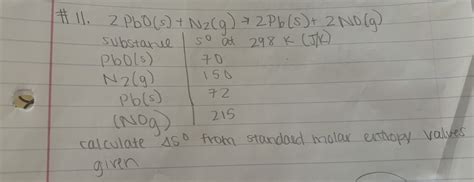 #11. 2 PbO(s) + N2(g) → 2Pb(s) + 2NO(g)
substance | S° at 298 K (J/K)
PbO(s) | 70
N2(g) | 150
Pb(s) | 72
(NOg) | 215
calculate ΔS° from standard molar enthopy values
given